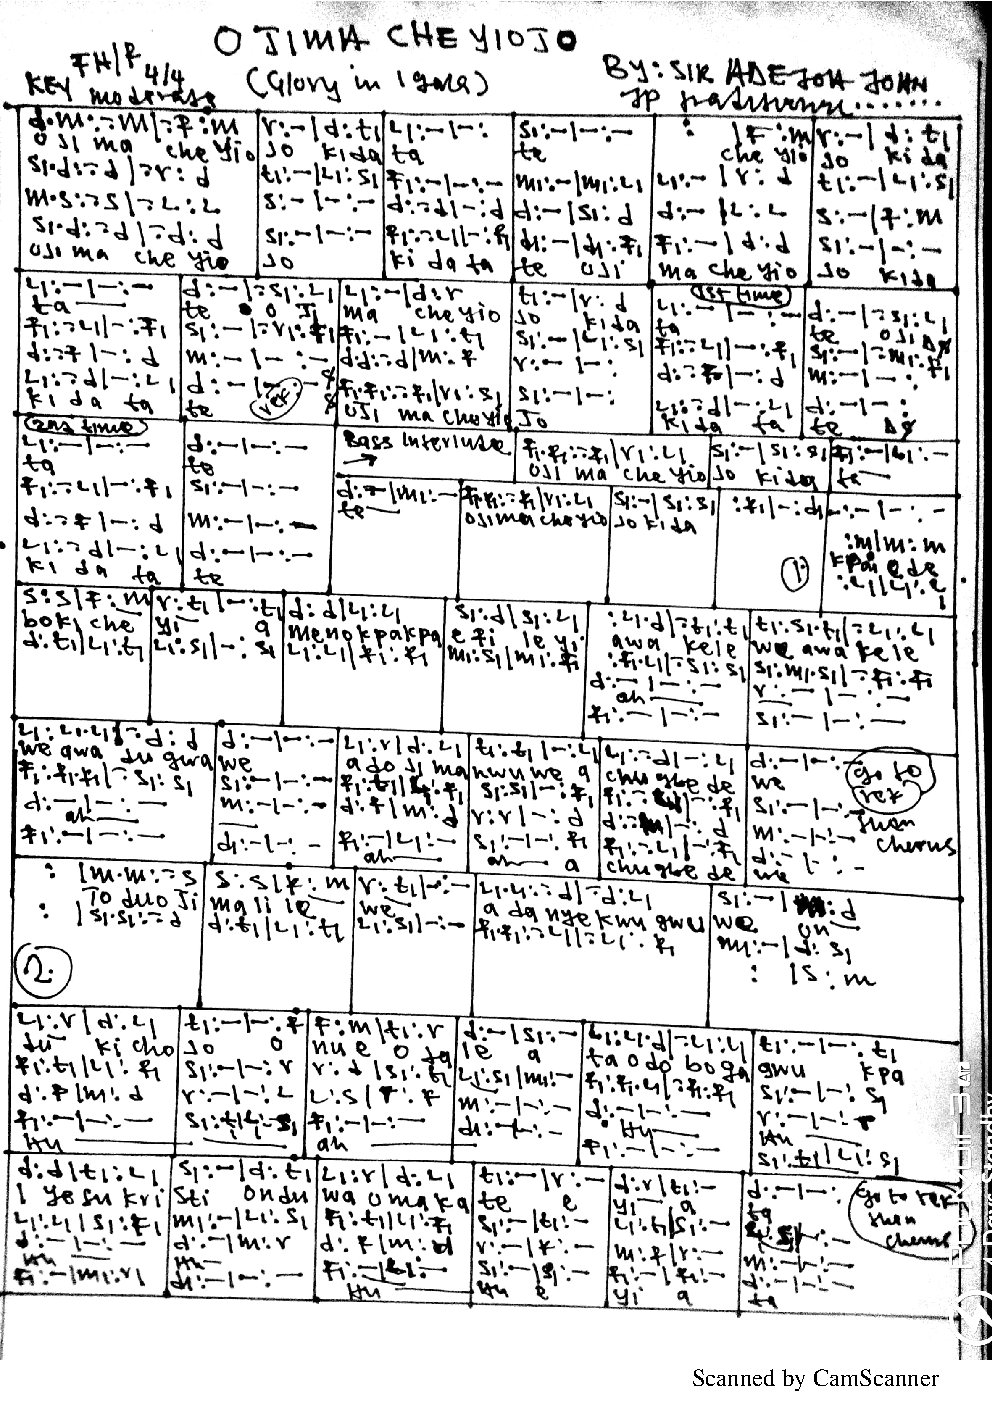 O JIMA CHE YIOJO
KEY FH/F 4/4
moderate
(Glory in Igala)
BY: SIR ADEJOH JOHN
d.m:-:m|-:f:m
OJI ma che yio
s₁.d:-:d|-:r:d
m.s:-:s|-:l:l
s₁.d:-:d|-:d:d
OJI ma che yio
r:-|d:t₁
Jo kida
t₁:-|l₁:s₁
s:-|-:-
s₁:-|-:-
Jo
l₁:-|-:-
ta
f₁:-|-:-
d:-:d|-:d
f₁:-:l₁|-:f₁
ki da ta
s₁:-|-:-
te
m₁:-|m₁:l₁
d:-|s₁:d
d₁:-|d₁:f₁
te OJI
: |f:m
che yio
l₁:-|r:d
d:-|l:l
f₁:-|d:d
ma che yio
r:-|d:t₁
Jo ki da
t₁:-|l₁:s₁
s:-|f:m
s₁:-|-:-
Jo kida
l₁:-|-:-
ta
f₁:-:l₁|-:f₁
d:-:f|-:d
l₁:-:d|-:l₁
ki da ta
d:-|-:s₁:l₁
te O JI
s₁:-|-:r₁:f₁
m:-|-:-
d:-|-:-
te
ref:
l₁:-|d:r
ma che yio
f₁:-|l₁:t₁
d.d:-:d|m:f
f₁.f₁:-:f₁|r₁:s₁
OJI ma che yio
t₁:-|r:d
Jo kida
s₁:-|l₁:s₁
r:-|-:-
Jo
1st time
l₁:-|-:-
ta
f₁:-:l₁|-:f₁
d:-:f|-:d
l₁:-:d|-:l₁
ki da ta
d:-|-:s₁:l₁
te OJI
s₁:-|-:m₁:f₁
m:-|-:-
d:-|-:-
te
2nd time
l₁:-|-:-
ta
f₁:-:l₁|-:f₁
d:-:f|-:d
l₁:-:d|-:l₁
ki da ta
d:-|-:-
te
s₁:-|-:-
m:-|-:-
d:-|-:-
te
Bass Interlude
f₁.f₁:-:f₁|r₁:l₁
OJI ma che yio
s₁:-|s₁:s₁
Jo kida
f₁:-|l₁:-
ta
d:-|m₁:-
te
f₁.f₁:-:f₁|r₁:l₁
OJI ma che yio
s₁:-|s₁:s₁
Jo kida
:f₁|-:d₁
1.
-:-|-:-
:m|m:m
s:s|f:m
boki che
d:t₁|l₁:t₁
r:t₁|-:t₁
yi a
l₁:s₁|-:s₁
d:d|l₁:l₁
menokpakpa
l₁:l₁|f₁:f₁
s₁:d|s₁:l₁
efi le yi
m₁:s₁|m₁:f₁
:l₁.d|-:t₁:t₁
awa kele
:f₁.l₁|-:s₁:s₁
d:-|-:-
ah
f₁:-|-:-
t₁.s₁.t₁|-:l₁:l₁
we awa kele
s₁.m₁.s₁|-:f₁:f₁
r:-|-:-
s₁:-|-:-
l₁.l₁.l₁|-:d:d
we awa du gwa
f₁.f₁.f₁|-:s₁:s₁
d:-|-:-
ah
f₁:-|-:-
d:-|-:-
we
s₁:-|-:-
m:-|-:-
d₁:-|-:-
l₁:r|d:l₁
ado Ji ma
d:f|m:d
f₁:-|l₁:-
ah
t₁:t₁|-:l₁
nwu we a
s₁:s₁|-:f₁
r:r|-:d
s₁:-|-:f₁
ah a
l₁:-:d|-:l₁
chugbe de
f₁:-:l₁|-:f₁
chugbe de
d:-|-:-
we
s₁:-|-:-
m:-|-:-
d:-|-:-
we
go to
ref
then
chorus
2.
: |m.m:-:s
To duo Ji
: |s₁.s₁:-:d
s:s|f:m
ma li le
d:t₁|l₁:t₁
r:t₁|-:-
we
l₁:s₁|-:-
l₁.l₁:-:d|-:d:l₁
a da nyekwu gwu
f₁.f₁:-:l₁|-:l₁:f₁
we on
m₁:-|d:s₁
: |s:m
l₁:r|d:l₁
du kicho
f₁:t₁|l₁:f₁
d:f|m:d
f₁:-|-:-
Hu
t₁:-|-:f
Jo O
s₁:-|-:r
r:-|-:l
f:m|t₁:r
nue O ta
r:d|s₁:t₁
f₁:-|-:-
ah
d:-|s₁:-
le a
l₁:s₁|m₁:-
m:-|-:-
d₁:-|-:-
l₁:l₁:d|-:l₁:l₁
ta odo boga
f₁:f₁.l₁|-:f₁:f₁
d:-|-:-
Hu
f₁:-|-:-
t₁:-|-:t₁
gwu kpa
s₁:-|-:s₁
r:-|-:r
Hu
s₁:t₁|l₁:s₁
d:d|t₁:l₁
I yesu kri
l₁:l₁|s₁:f₁
d:-|-:-
Hu
f₁:-|m₁:r₁
s₁:-|d:t₁
sti ondu
m₁:-|l₁:s₁
d:-|m:r
Hu
d₁:-|-:-
l₁:r|d:l₁
wa omaka
f₁:t₁|l₁:f₁
d:f|m:d
Hu
t₁:-|r:-
te e
s₁:-|t₁:-
r:-|f:-
s₁:-|s₁:-
Hu e
d:r|t₁:-
yi a
l₁:t₁|s₁:-
m:f|r:-
f₁:-|f₁:-
yi a
d:-|-:-
ta
m:-|-:-
d:-|-:-
ta
go to ref
then
chorus
Scanned by CamScanner